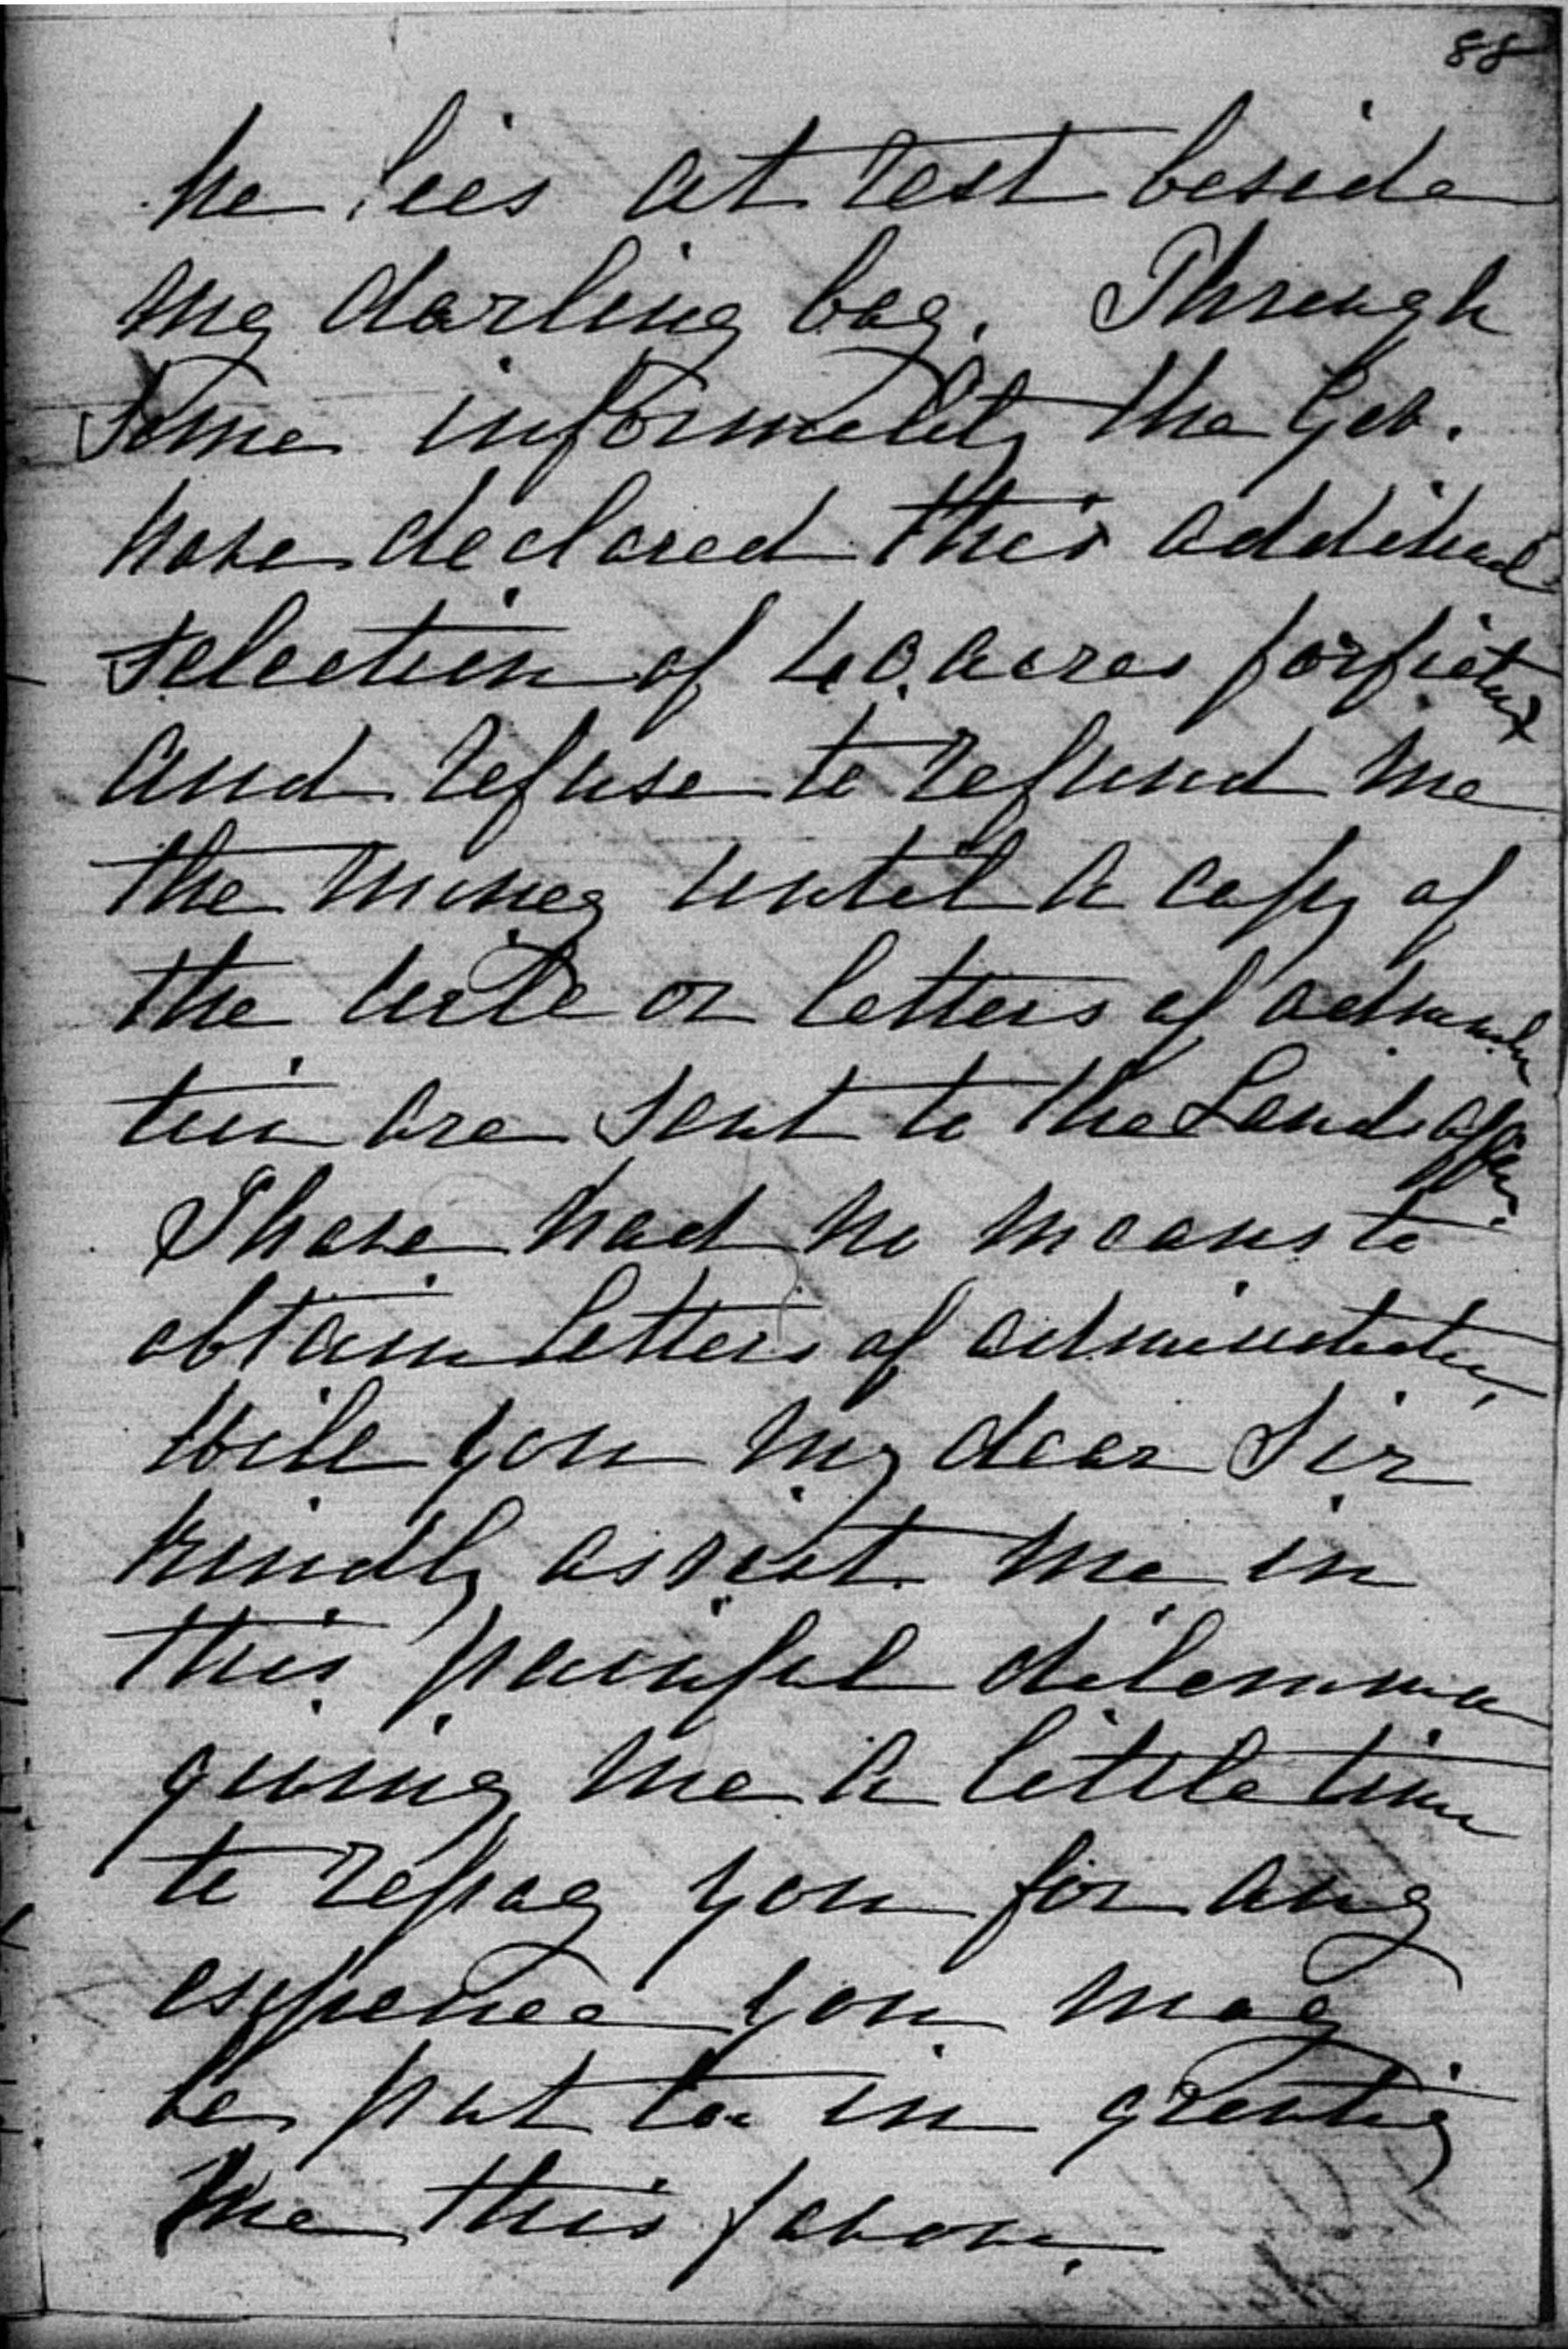 88
he lies at rest beside
my darling boy. Through
Some informality the Gov.
have declared this additional
selection of 40 acres forfieted
and refuse to refund me
the money until a copy of
the will or letters of administra
tion are sent to the Lands office.
I have had no means to
obtain letters of administration,
Will you my dear Sir
kindly assist me in
this painful dilemma
giving me a little time
to repay you for any
expense you may
be put to in granting
me this favour.